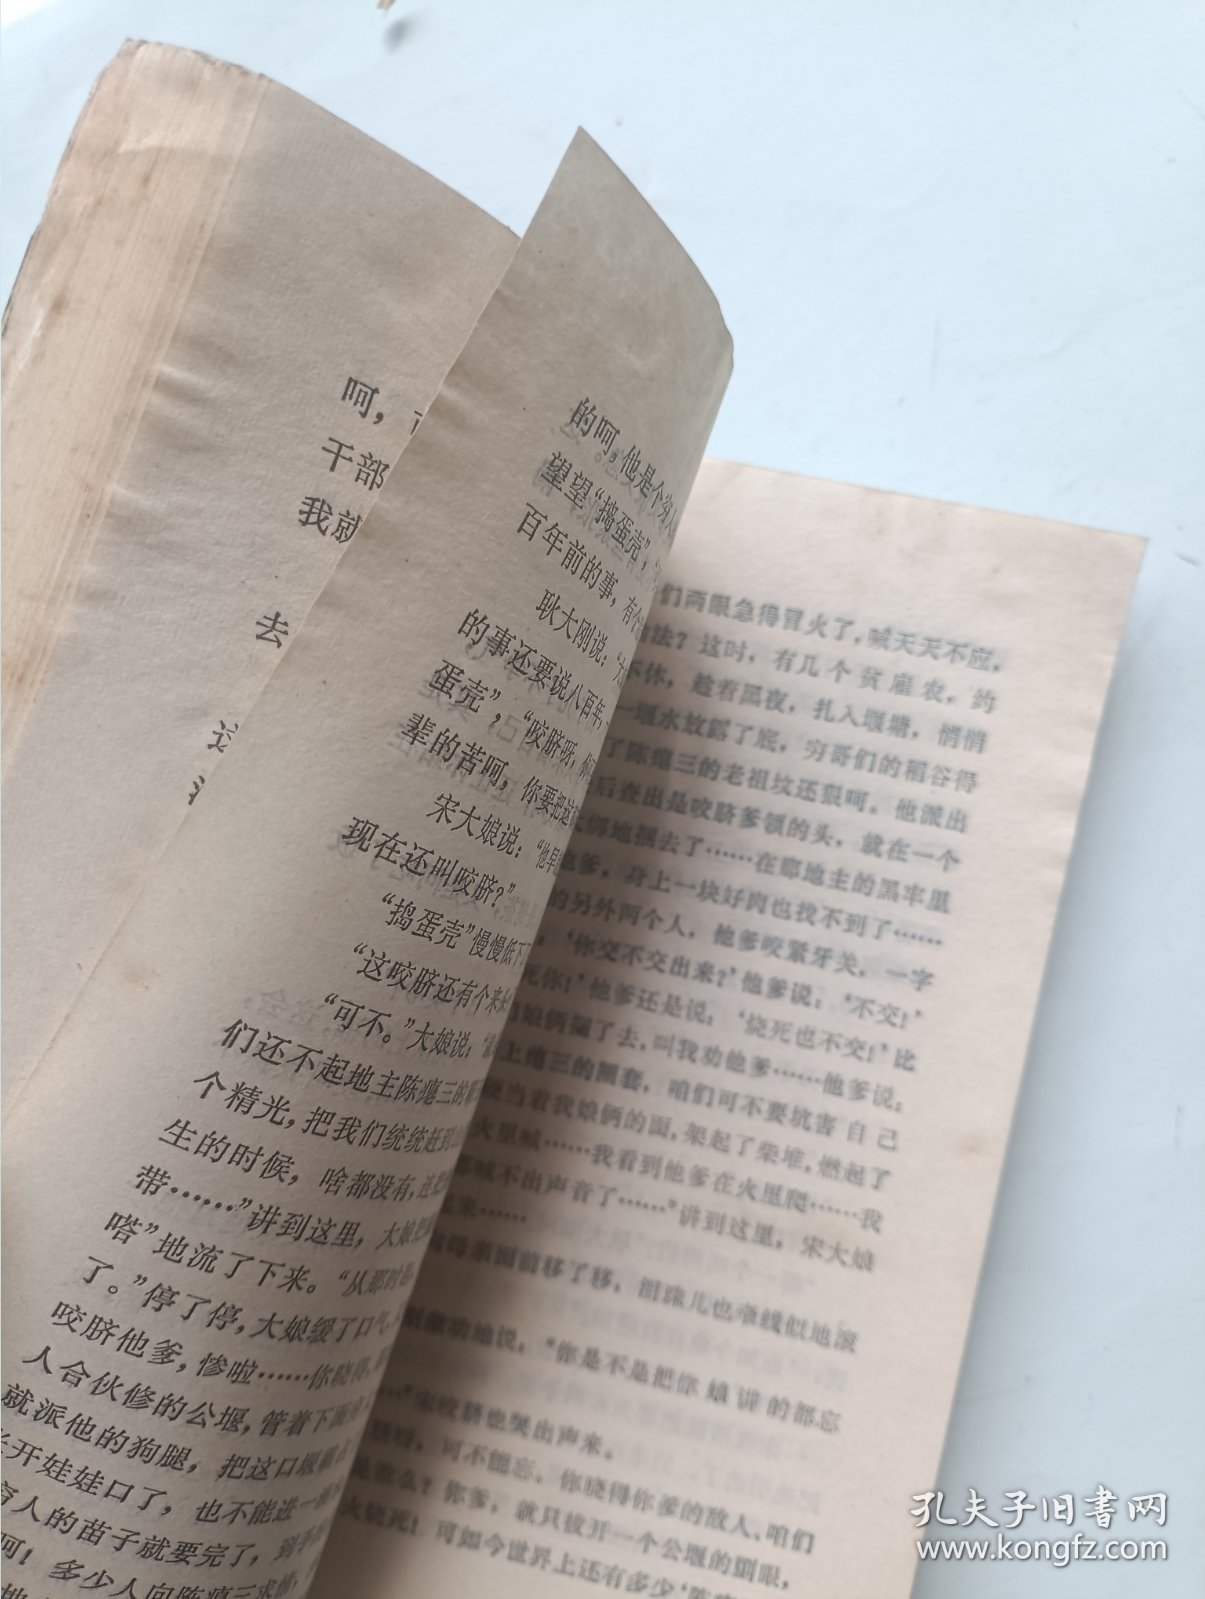 呵，
干部
我就
去
的呵，他是个穷人
望望“捣蛋壳”，
百年前的事，有个
耿大刚说：“大
的事还要说八百年，
蛋壳”，“咬脐呀，你
辈的苦呵，你要把这
宋大娘说：“他早
现在还叫咬脐？”
“捣蛋壳”慢慢低下
“这咬脐还有个来头
“可不。”大娘说：
们还不起地主陈瘪三的
个精光，把我们统统赶到
生的时候，啥都没有，连把
带……”讲到这里，大娘
嗒”地流了下来。“从那时起
了。”停了停，大娘缓了口气，
咬脐他爹，惨啦……你晓得，
人合伙修的公堰，管着下面
就派他的狗腿，把这口堰霸占
开娃娃口了，也不能进一
人的苗子就要完了，到手
呵！多少人向陈瘪三求情
们两眼急得冒火了，喊天天不应，
法？这时，有几个贫雇农，约
不休，趁着黑夜，扎入堰塘，悄悄
一堰水放露了底，穷哥们的稻谷得
了陈瘪三的老祖坟还狠呵。他派出
后查出是咬脐爹领的头，就在一个
绑地捆去了……在那地主的黑牢里
他爹，身上一块好肉也找不到了……
的另外两个人，他爹咬紧牙关，一字
‘你交不交出来？’他爹说：‘不交！’
死你！’他爹还是说：‘烧死也不交！’比
娘俩掳了去，叫我劝他爹……他爹说：
上瘪三的圈套，咱们可不要坑害自己
当着我娘俩的面，架起了柴堆，燃起了
火里喊……我看到他爹在火里爬……我
喊不出声音了……”讲到这里，宋大娘
来……
母亲面前移了移，泪珠儿也牵线似地滚
激动地说：“你是不是把你娘讲的都忘
…”宋咬脐也哭出声来。
可不能忘。你晓得你爹的敌人、咱们
是谁么？你爹，就只拔开一个公堰的剅眼，
火烧死！可如今世界上还有多少‘陈
孔夫子旧书网
www.kongfz.com